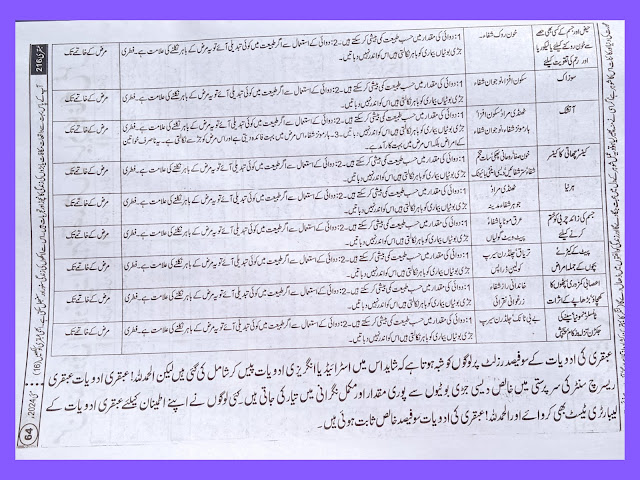 حیض اور جسم کے کسی بھی حصے سے خون روکنے کیلئے یا لیکوریا اور رحم کی تقویت کیلئے
خون روک شفاء۔
1: دوائی کی مقدار میں حسب طبیعت کی بیشی کر سکتے ہیں۔ 2: دوائی کے استعمال سے اگر طبیعت میں کوئی تبدیلی آئے تو یہ مرض کے باہر نکلنے کی علامت ہے۔ فطری
جڑی بوٹیاں بیماری کو باہر نکالتی ہیں اس کو اندر نہیں دباتیں۔
مرض کے خاتمے تک
سوزاک
سکون افزا، نوجوان شفاء
1: دوائی کی مقدار میں حسب طبیعت کی بیشی کر سکتے ہیں۔ 2: دوائی کے استعمال سے اگر طبیعت میں کوئی تبدیلی آئے تو یہ مرض کے باہر نکلنے کی علامت ہے۔ فطری
جڑی بوٹیاں بیماری کو باہر نکالتی ہیں اس کو اندر نہیں دباتیں۔
مرض کے خاتمے تک
آتشک
ٹھنڈی مراد، سکون افزا
ہارمونز شفاء، نوجوان شفاء
1: دوائی کی مقدار میں حسب طبیعت کی بیشی کر سکتے ہیں۔ 2: دوائی کے استعمال سے اگر طبیعت میں کوئی تبدیلی آئے تو یہ مرض کے باہر نکلنے کی علامت ہے۔ فطری
جڑی بوٹیاں بیماری کو باہر نکالتی ہیں اس کو اندر نہیں دباتیں۔ 3۔ ہارمونز شفاء، اس مرض میں بہت فائدہ دیتی ہے اور اس مرض کو جڑ سے نکالتی ہے۔ یہ نا صرف خواتین
کے امراض بلکہ اس مرض میں بہت کار آمد ہے۔
مرض کے خاتمے تک
کینسر چھاتی کا کینسر
1: دوائی کی مقدار میں حسب طبیعت کی بیشی کر سکتے ہیں۔ 2: دوائی کے استعمال سے اگر طبیعت میں کوئی تبدیلی آئے تو یہ مرض کے باہر نکلنے کی علامت ہے۔ فطری
جڑی بوٹیاں بیماری کو باہر نکالتی ہیں اس کو اندر نہیں دباتیں۔
مرض کے خاتمے تک
ہرنیا
ٹھنڈی مراد
جوہر شفاء مدینہ
1: دوائی کی مقدار میں حسب طبیعت کی بیشی کر سکتے ہیں۔ 2: دوائی کے استعمال سے اگر طبیعت میں کوئی تبدیلی آئے تو یہ مرض کے باہر نکلنے کی علامت ہے۔ فطری
جڑی بوٹیاں بیماری کو باہر نکالتی ہیں اس کو اندر نہیں دباتیں۔
مرض کے خاتمے تک
جسم کی زائد چربی کو ختم کرنے کیلئے
عرق موٹاپا شفاء
پیٹ ویٹ گولیاں
1: دوائی کی مقدار میں حسب طبیعت کی بیشی کر سکتے ہیں۔ 2: دوائی کے استعمال سے اگر طبیعت میں کوئی تبدیلی آئے تو یہ مرض کے باہر نکلنے کی علامت ہے۔ فطری
جڑی بوٹیاں بیماری کو باہر نکالتی ہیں اس کو اندر نہیں دباتیں۔
مرض کے خاتمے تک
پیٹ کے کیڑے
بچوں کے جملہ امراض
تریاق چلڈرن سیرپ
کولین ڈراپس
1: دوائی کی مقدار میں حسب طبیعت کی بیشی کر سکتے ہیں۔ 2: دوائی کے استعمال سے اگر طبیعت میں کوئی تبدیلی آئے تو یہ مرض کے باہر نکلنے کی علامت ہے۔ فطری
جڑی بوٹیاں بیماری کو باہر نکالتی ہیں اس کو اندر نہیں دباتیں۔
مرض کے خاتمے تک
اعصابی کمزوری، پٹھوں کا کھچاؤ، بڑھاپے کے اثرات
خاندانی راز شفاء
زعفرانی توانائی
1: دوائی کی مقدار میں حسب طبیعت کی بیشی کر سکتے ہیں۔ 2: دوائی کے استعمال سے اگر طبیعت میں کوئی تبدیلی آئے تو یہ مرض کے باہر نکلنے کی علامت ہے۔ فطری
جڑی بوٹیاں بیماری کو باہر نکالتی ہیں اس کو اندر نہیں دباتیں۔
مرض کے خاتمے تک
بے بی ٹانک چلڈرن سیرپ
1: دوائی کی مقدار میں حسب طبیعت کی بیشی کر سکتے ہیں۔ 2: دوائی کے استعمال سے اگر طبیعت میں کوئی تبدیلی آئے تو یہ مرض کے باہر نکلنے کی علامت ہے۔ فطری
جڑی بوٹیاں بیماری کو باہر نکالتی ہیں اس کو اندر نہیں دباتیں۔
مرض کے خاتمے تک
عبقری کی ادویات کے سو فیصد رزلٹ پر لوگوں کو شبہ ہوتا ہے کہ شاید اس میں اسٹرائیڈ یا انگریزی ادویات پیس کر شامل کی گئی ہیں لیکن الحمد للہ! عبقری ادویات عبقری
ریسرچ سنٹر کی سرپرستی میں خالص دیسی جڑی بوٹیوں سے پوری مقدار اور مکمل نگرانی میں تیار کی جاتی ہیں۔ کئی لوگوں نے اپنے اطمینان کیلئے عبقری ادویات کے
لیبارٹری ٹیسٹ بھی کروائے اور الحمد للہ! عبقری کی ادویات سو فیصد خالص ثابت ہوئی ہیں۔
عبقری 216
(16)
مئی 2024ء
64